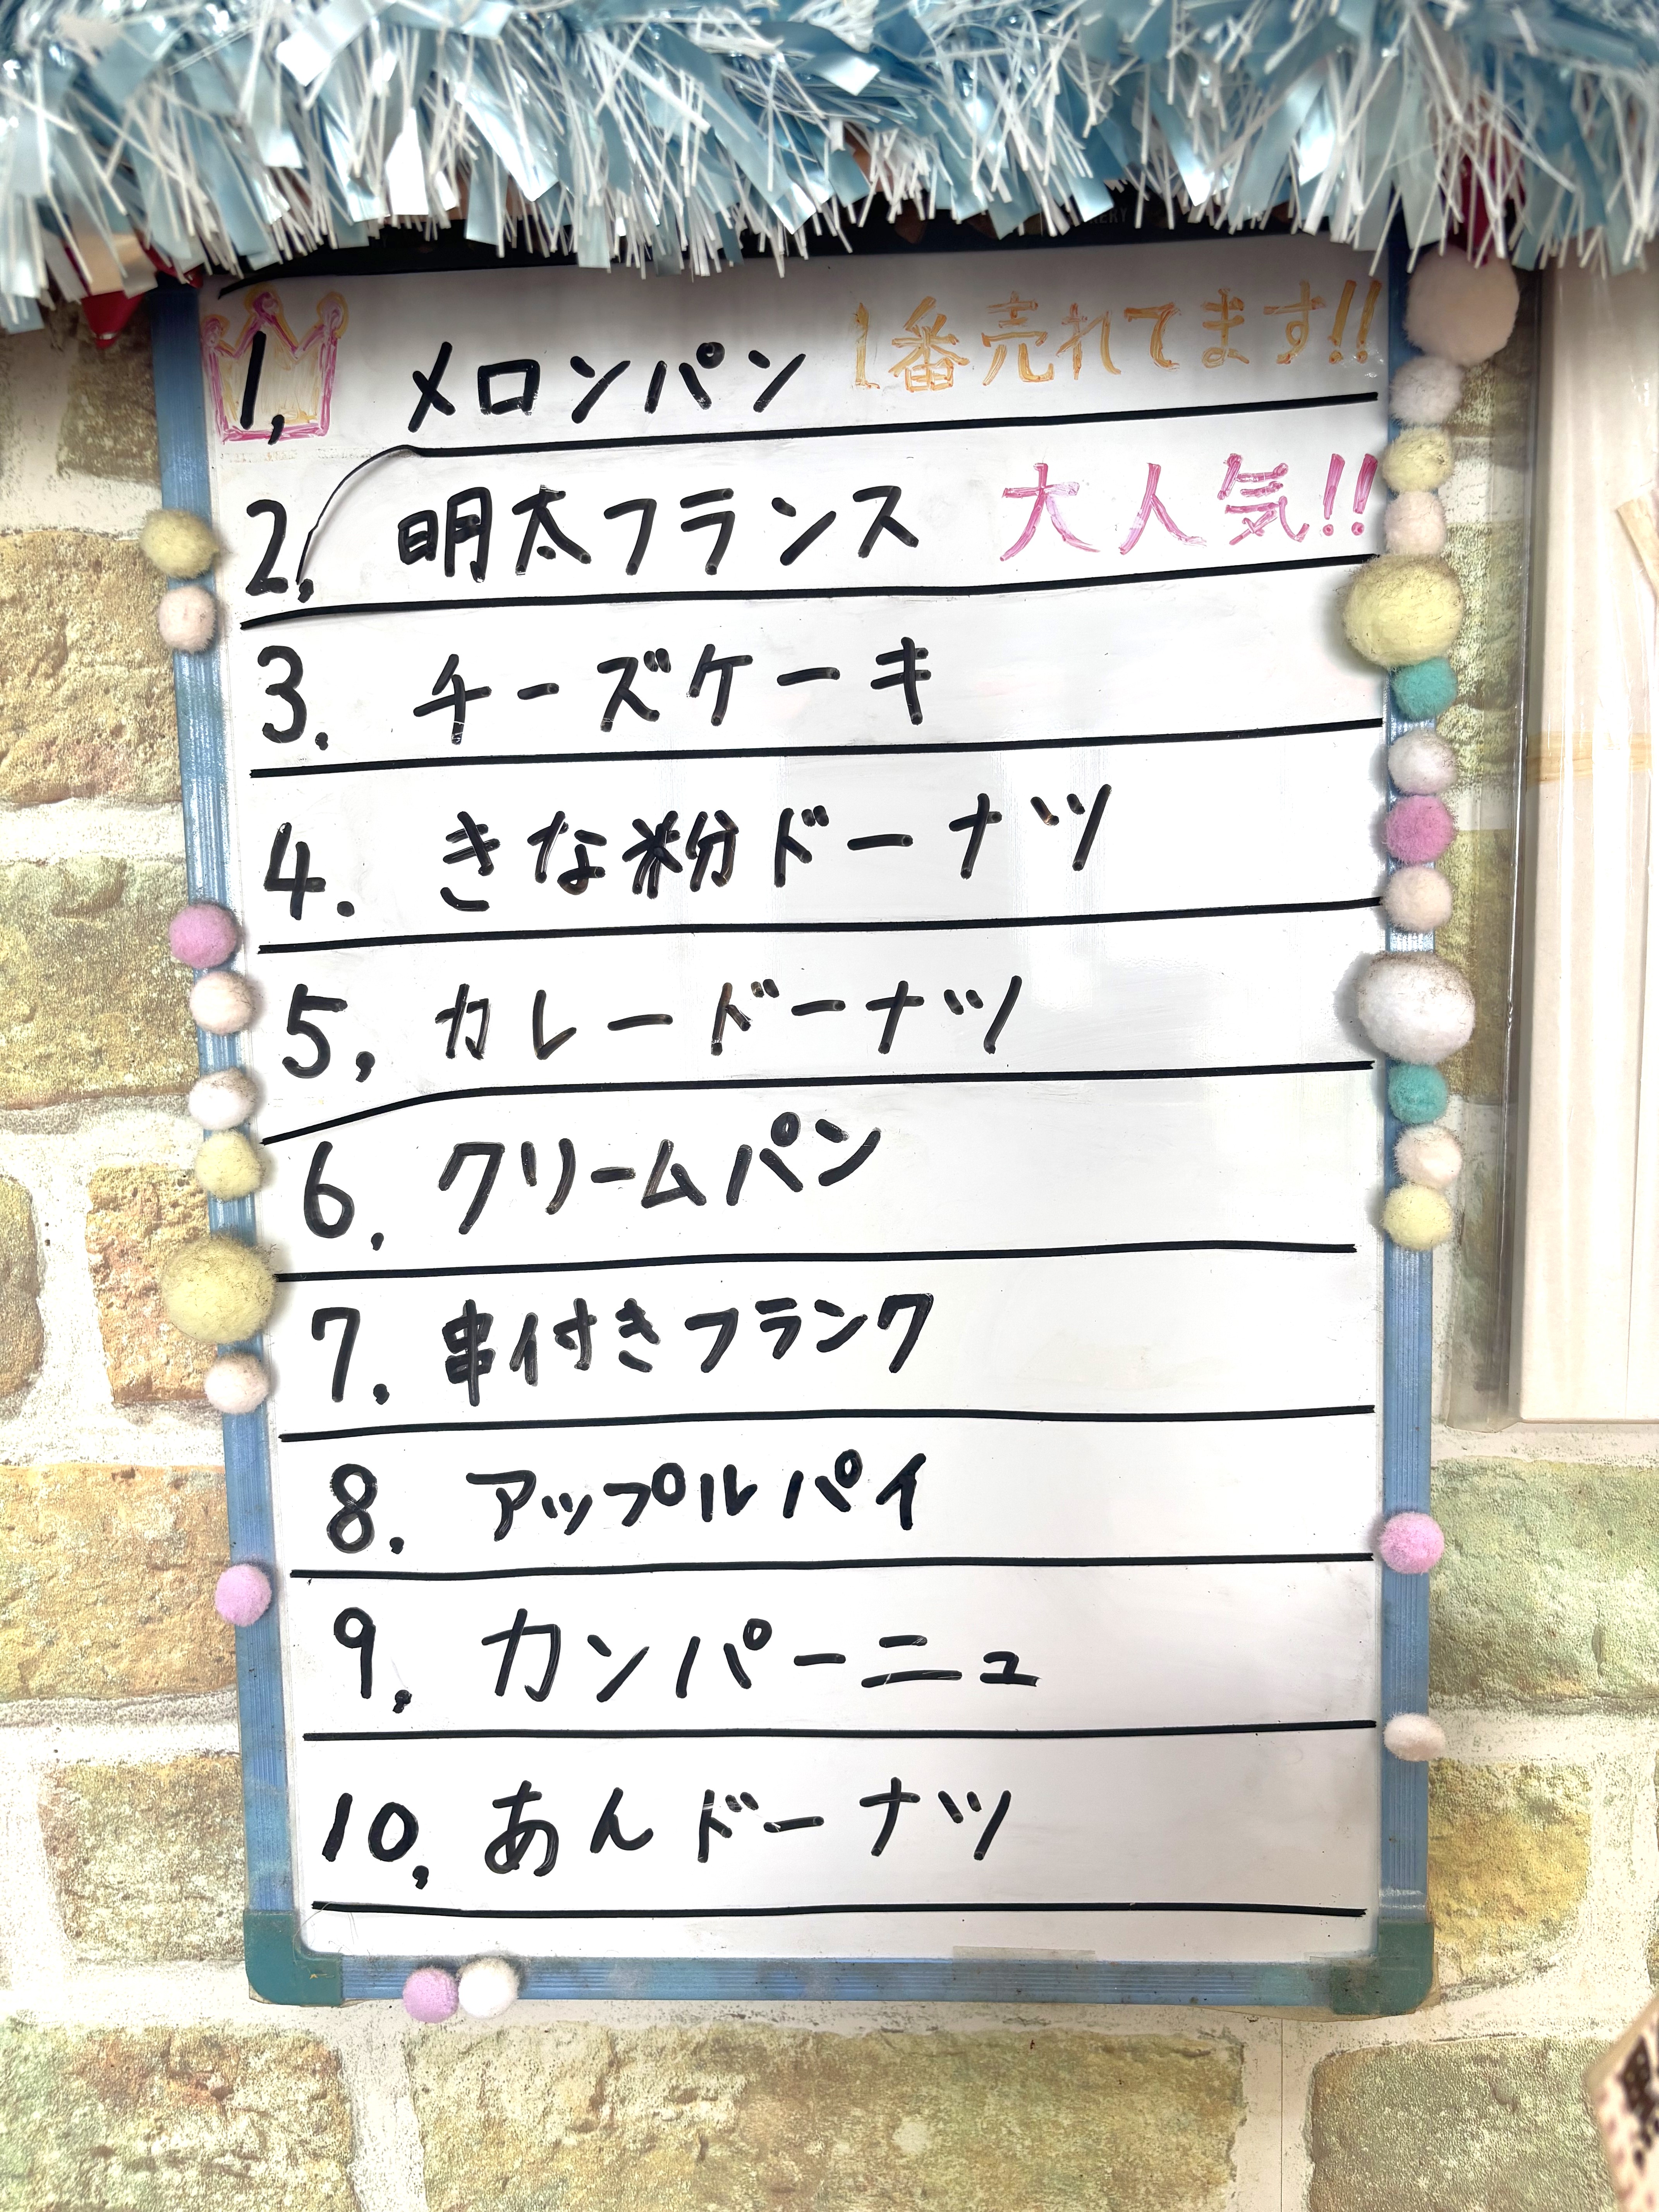 1, メロンパン 1番売れてます!!
2, 明太フランス 大人気!!
3. チーズケーキ
4. きな粉ドーナツ
5, カレードーナツ
6, クリームパン
7, 串付きフランク
8, アップルパイ
9, カンパーニュ
10, あんドーナツ